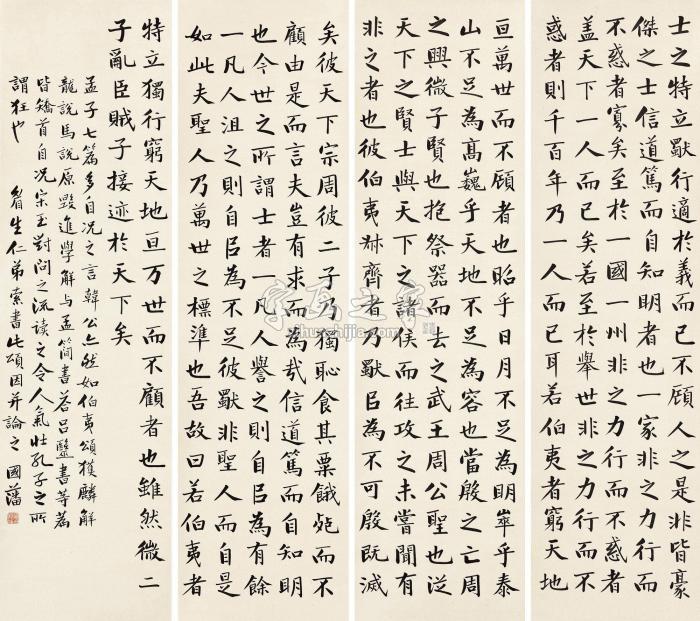 士之特立獨行適於義而已不顧人之是非皆豪
傑之士信道篤而自知明者也一家非之力行而
不惑者寡矣至於一國一州非之力行而不惑者
盖天下一人而已矣若至於舉世非之力行而不
惑者則千百年乃一人而已耳若伯夷者窮天地
亘萬世而不顧者也昭乎日月不足為明崒乎泰
山不足為高巍乎天地不足為容也當殷之亡周
之興微子賢也抱祭器而去之武王周公聖也從
天下之賢士與天下之諸侯而往攻之未嘗聞有
非之者也彼伯夷叔齊者乃獨㠯為不可殷既滅
矣彼天下宗周彼二子乃獨恥食其粟餓死而不
顧由是而言夫豈有求而為哉信道篤而自知明
也今世之所謂士者一凡人譽之則自㠯為有餘
一凡人沮之則自㠯為不足彼獨非聖人而自是
如此夫聖人乃萬世之標準也吾故曰若伯夷者
特立獨行窮天地亘万世而不顧者也雖然微二
子亂臣賊子接迹於天下矣
孟子七篇多自況之言韓公亦然如伯夷頌獲麟解
龍說馬說原毀進學解与孟簡書答呂毉書等篇
皆矯首自況宋玉對問之流讀之令人氣壯孔子之所
謂狂也 生仁弟索書此頌因并論之 國藩
字画之家
zihuazhijia.com